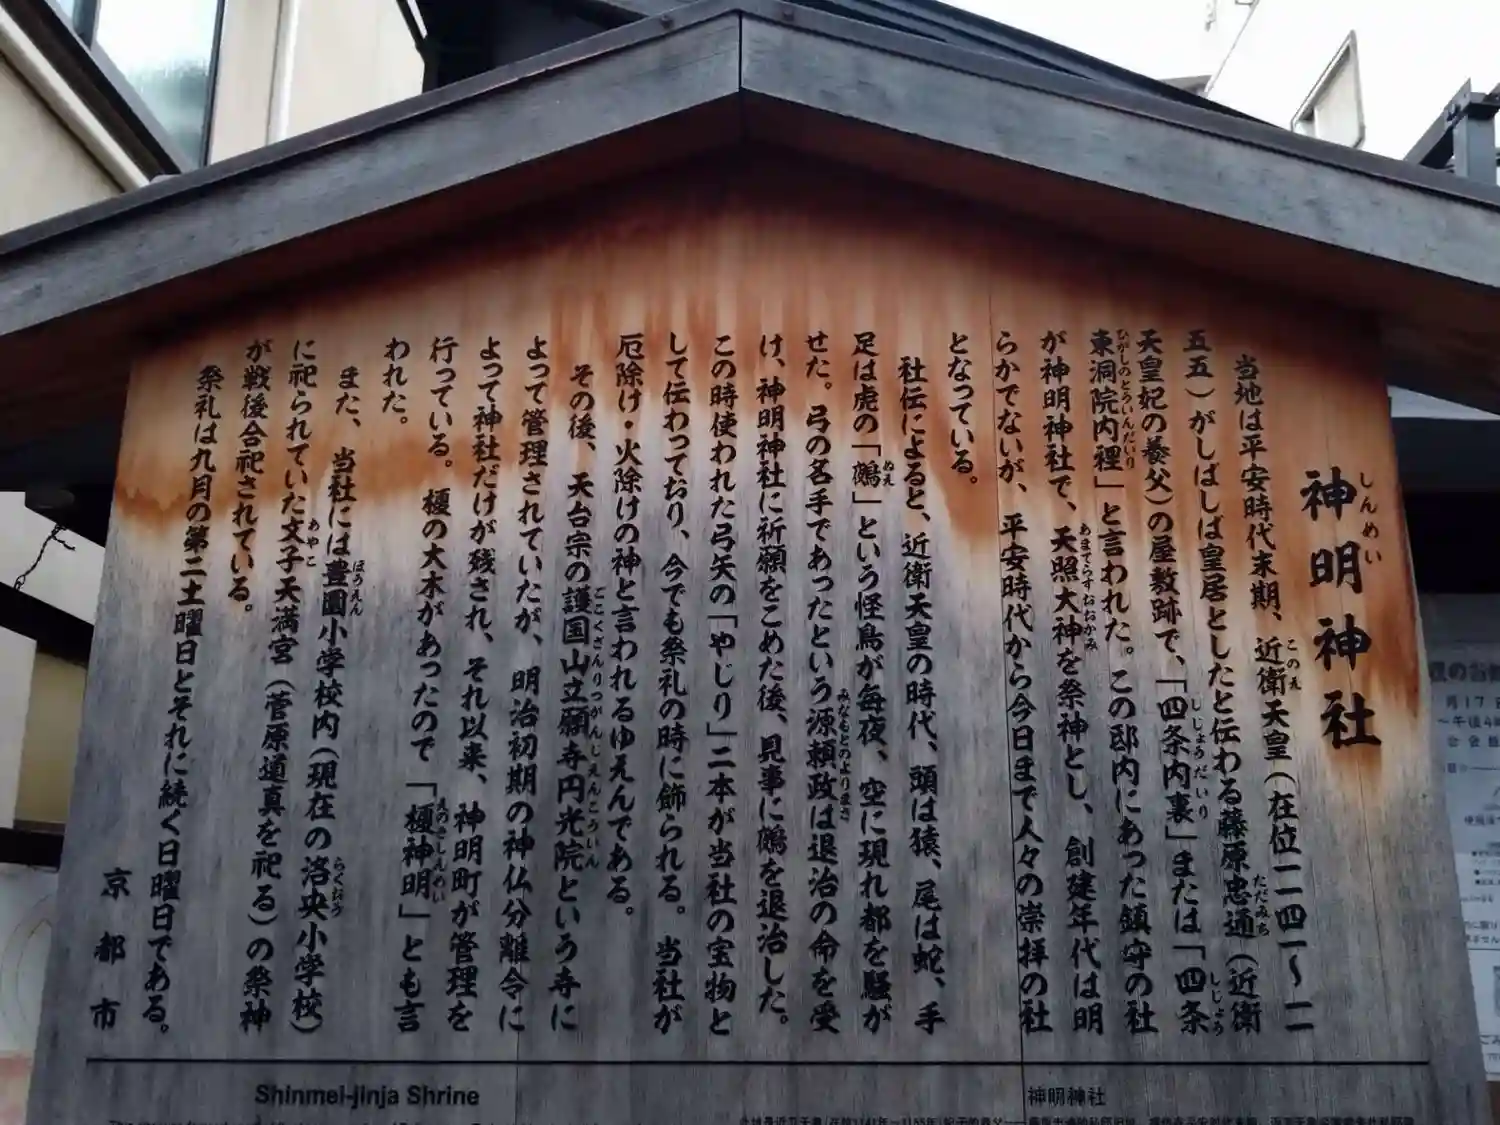 神明神社
しんめい
当地は平安時代末期、近衛天皇（在位一一四一〜一一
五五）がしばしば皇居としたと伝わる藤原忠通（近衛
天皇妃の養父）の屋敷跡で、「四条内裏」または「四条
東洞院内裡」と言われた。この邸内にあった鎮守の社
が神明神社で、天照大神を祭神とし、創建年代は明
らかでないが、平安時代から今日まで人々の崇拝の社
となっている。
社伝によると、近衛天皇の時代、頭は猿、尾は蛇、手
足は虎の「鵺」という怪鳥が毎夜、空に現れ都を騒が
せた。弓の名手であったという源頼政は退治の命を受
け、神明神社に祈願をこめた後、見事に鵺を退治した。
この時使われた弓矢の「やじり」二本が当社の宝物と
して伝わっており、今でも祭礼の時に飾られる。当社が
厄除け・火除けの神と言われるゆえんである。
その後、天台宗の護国山立願寺円光院という寺に
よって管理されていたが、明治初期の神仏分離令に
よって神社だけが残され、それ以来、神明町が管理を
行っている。榎の大木があったので「榎神明」とも言
われた。
また、当社には豊園小学校内（現在の洛央小学校）
に祀られていた文子天満宮（菅原道真を祀る）の祭神
が戦後合祀されている。
祭礼は九月の第二土曜日とそれに続く日曜日である。
京都市
Shinmei-jinja Shrine
神明神社